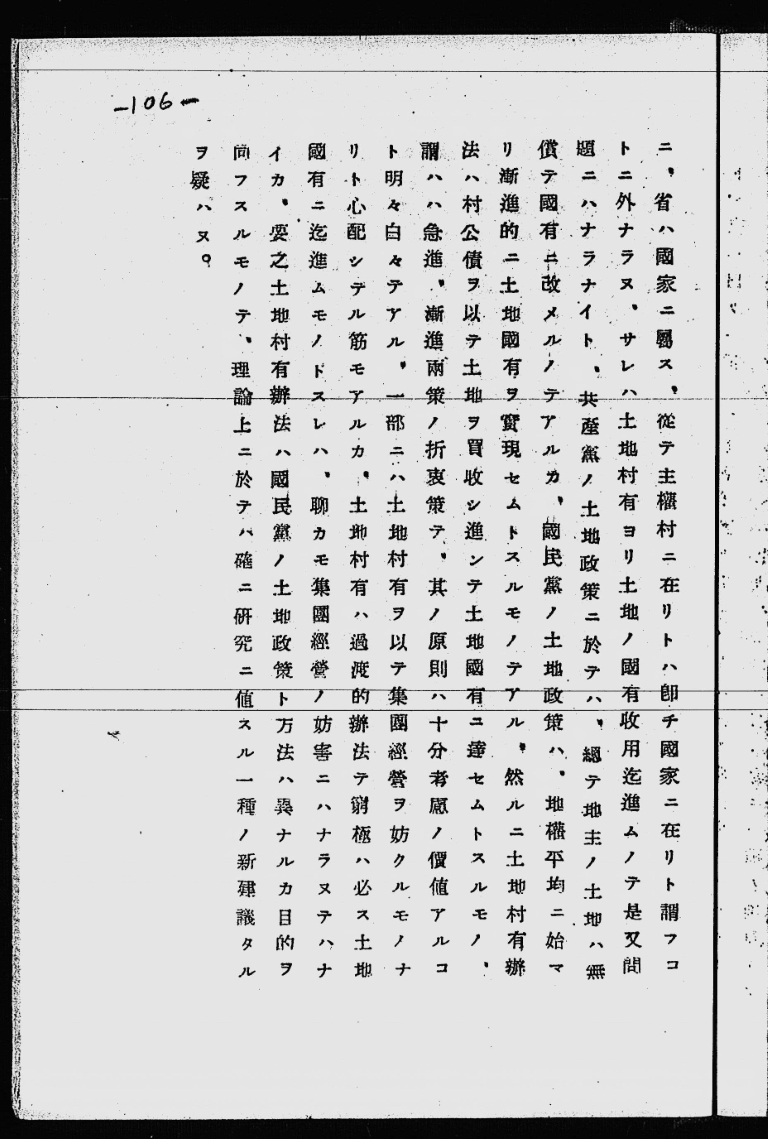 -106-
ニ、省ハ國家ニ屬ス、從テ主權村ニ在リトハ卽チ國家ニ在リト謂フコ
トニ外ナラヌ、サレハ土地村有ヨリ土地ノ國有收用迄進ムノテ是又問
題ニハナラナイト、共產黨ノ土地政策ニ於テハ、總テ地主ノ土地ハ無
償テ國有ニ改メルノテアルカ、國民黨ノ土地政策ハ、地權平均ニ始マ
リ漸進的ニ土地國有ヲ實現セムトスルモノテアル、然ルニ土地村有辦
法ハ村公債ヲ以テ土地ヲ買收シ進ンテ土地國有ニ達セムトスルモノ、
謂ハハ急進、漸進兩策ノ折衷策テ、其ノ原則ハ十分考慮ノ價値アルコ
ト明々白々テアル、一部ニハ土地村有ヲ以テ集團經營ヲ妨クルモノナ
リト心配シテル筋モアルカ、土地村有ハ過渡的辦法テ窮極ハ必ス土地
國有ニ迄進ムモノトスレハ、聊カモ集團經營ノ妨害ニハナラヌテハナ
イカ、要之土地村有辦法ハ國民黨ノ土地政策ト方法ハ異ナルカ目的ヲ
同フスルモノテ、理論上ニ於テハ確ニ硏究ニ値スル一種ノ新建議タル
ヲ疑ハヌ。